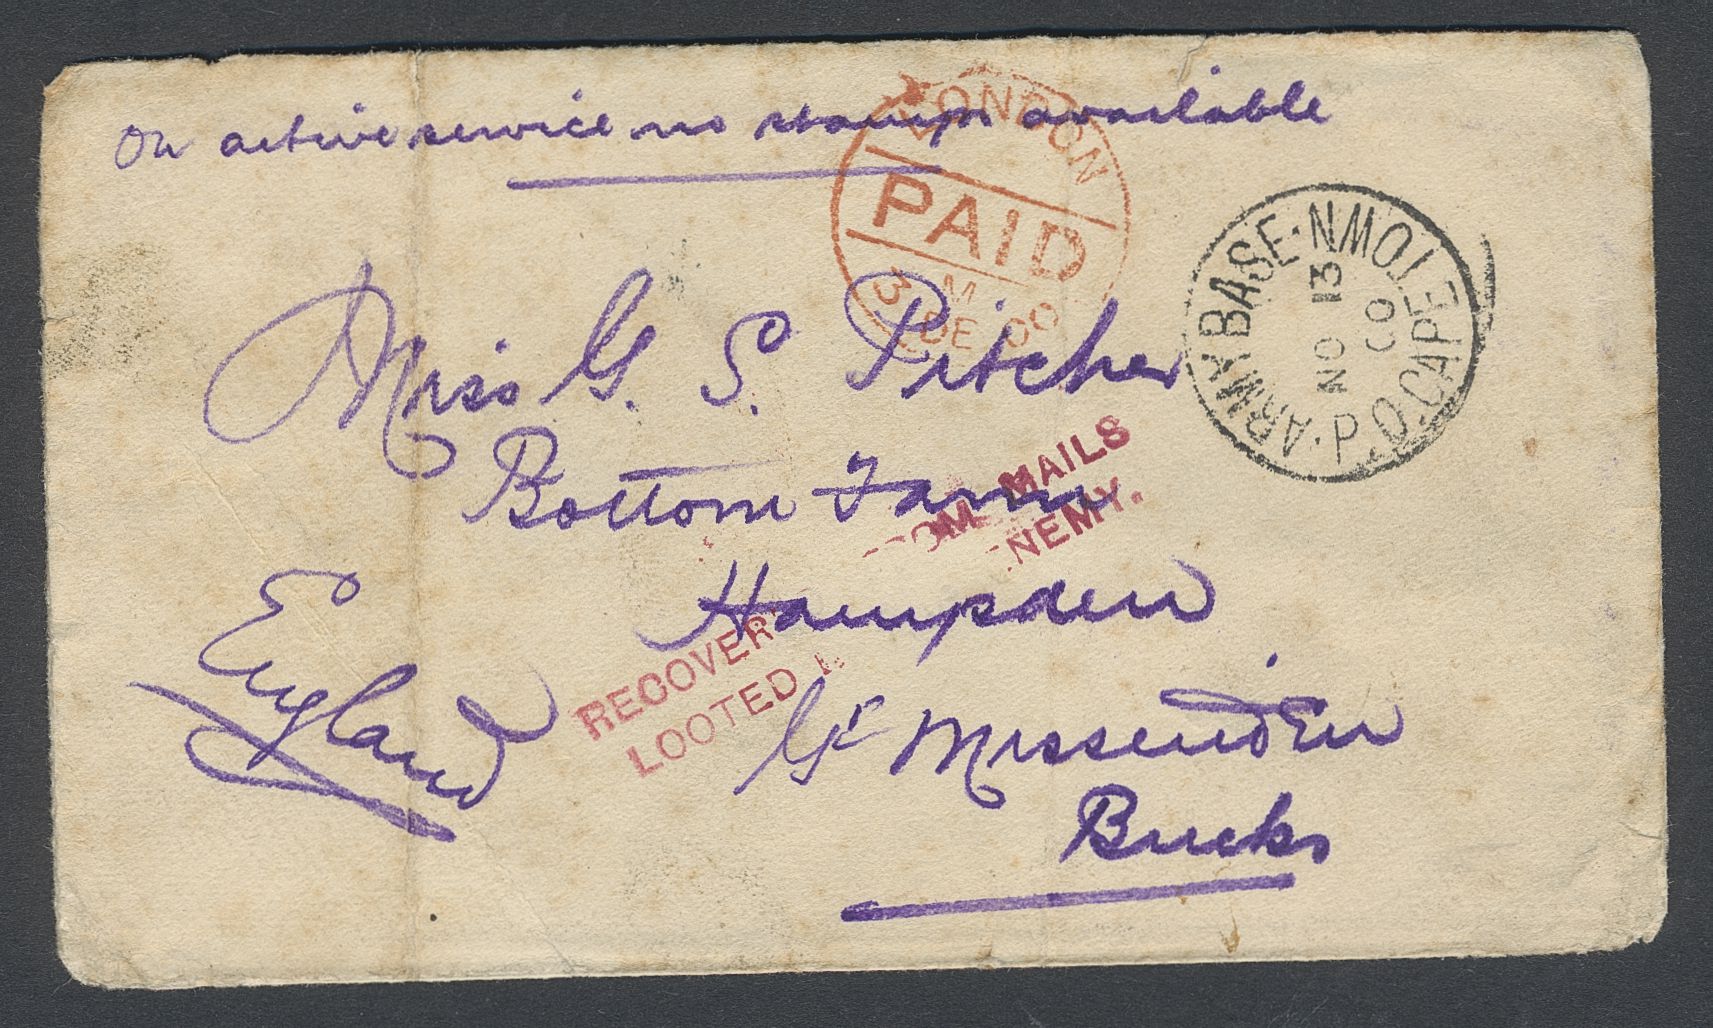 On active service no stamps available
LONDON
PAID
M
3 DE 00
ARMY BASE. P.O. CAPE TOWN.
NO 13
00
Miss G. S. Pitcher
Bottom Farm
Hampden
Gt Missenden
Bucks
England
RECOVER OM MAILS
LOOTED NEMY.